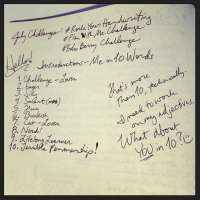 July Challenge: #RockYourHandwriting
#PlanWithMeChallenge
#BohoBerryChallenge
Hello!
Introduction - Me in 10 Words
1. Challenge - Lover
2. Eager
3. Silly
4.
5. Mom
6. Bookish
7. Cat - Lover
8. Nerd!
9. Lifelong Learner
10. Terrible Penmanship!
That's more
than 10, technically.
I need to work
on my adjectives.
What about
YOU in 10?